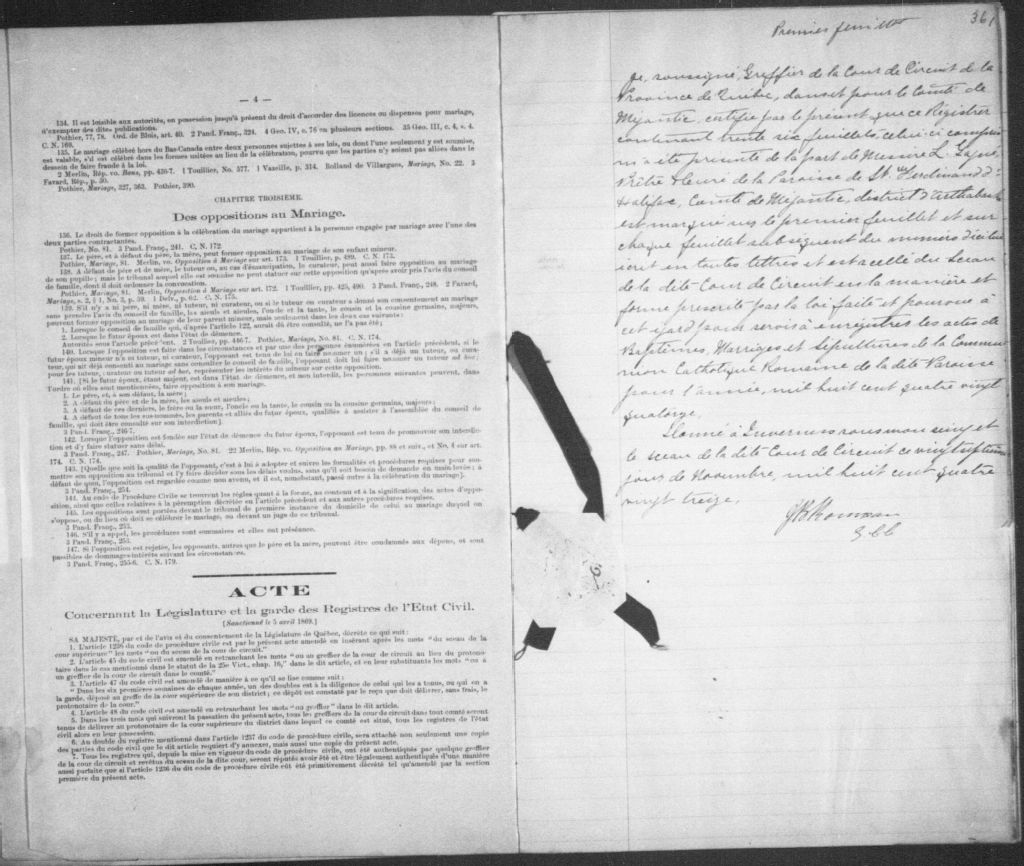 — 4 —
134. Il est loisible aux autorités, en possession jusqu'à présent du droit d'accorder des licences ou dispenses pour mariage,
d'exempter des dites publications.
Pothier, 77, 78. Ord. de Blois, art. 40. 2 Pand. Franç., 324. 4 Geo. IV, c. 76 en plusieurs sections. 35 Geo. III, c. 4, s. 4.
C. N. 169.
135. Le mariage célébré hors du Bas-Canada entre deux personnes sujettes à ses lois, ou dont l'une seulement y est soumise,
est valable, s'il est célébré dans les formes usitées au lieu de la célébration, pourvu que les parties n'y soient pas allées dans le
dessein de faire fraude à la loi.
2 Merlin, Rép. vo. Bans, pp. 436-7. 1 Touillier, No. 577. 1 Vazeille, p. 314. Rolland de Villargues, Mariage, No. 22. 3
Favard, Rép., p. 50.
Pothier, Mariage, 327, 363. Pothier, 390.
CHAPITRE TROISIEME.
Des oppositions au Mariage.
136. Le droit de former opposition à la célébration du mariage appartient à la personne engagée par mariage avec l'une des
deux parties contractantes.
Pothier, No. 81. 3 Pand. Franç., 241. C. N. 172.
137. Le père, et à défaut du père, la mère, peut former opposition au mariage de son enfant mineur.
Pothier, Mariage, 81. Merlin, vo. Opposition à Mariage sur art. 173. 1 Touillier, p. 489. C. N. 173.
138. A défaut de père et de mère, le tuteur ou, au cas d'émancipation, le curateur, peut aussi faire opposition au mariage
de son pupille; mais le tribunal auquel elle est soumise ne peut statuer sur cette opposition qu'après avoir pris l'avis du conseil
de famille, dont il doit ordonner la convocation.
Pothier, Mariage, 81. Merlin, Opposition à Mariage sur art. 172. 1 Touillier, pp. 425, 490. 3 Pand. Franç., 248. 2 Favard,
Mariage, s. 2, § 1, No. 3, p. 59. 1 Delv., p. 62. C. N. 175.
139. S'il n'y a ni père, ni mère, ni tuteur, ni curateur, ou si le tuteur ou curateur a donné son consentement au mariage
sans prendre l'avis du conseil de famille, les aïeuls et aïeules, l'oncle et la tante, le cousin et la cousine germains, majeurs,
peuvent former opposition au mariage de leur parent mineur, mais seulement dans les deux cas suivants:
1. Lorsque le conseil de famille qui, d'après l'article 122, aurait dû être consulté, ne l'a pas été;
2. Lorsque le futur époux est dans l'état de démence.
Autorités sous l'article précédent. 2 Toullier, pp. 446-7. Pothier, Mariage, No. 81. C. N. 174.
140. Lorsque l'opposition est faite dans les circonstances et par une des personnes énumérées en l'article précédent, si le
futur époux mineur n'a ni tuteur, ni curateur, l'opposant est tenu de lui en faire nommer un; s'il a déjà un tuteur, ou cura-
teur, qui ait déjà consenti au mariage sans consulter le conseil de famille, l'opposant doit lui faire nommer un tuteur ad hoc;
pour les tuteur, curateur ou tuteur ad hoc, représenter les intérêts du mineur sur cette opposition.
141. [Si le futur époux, étant majeur, est dans l'état de démence, et non interdit, les personnes suivantes peuvent, dans
l'ordre où elles sont mentionnées, faire opposition à son mariage.
1. Le père, et, à son défaut, la mère;
2. A défaut du père et de la mère, les aïeuls et aïeules;
3. A défaut de ces derniers, le frère ou la sœur, l'oncle ou la tante, le cousin ou la cousine germains, majeurs;
4. A défaut de tous les sus-nommés, les parents et alliés du futur époux, qualifiés à assister à l'assemblée du conseil de
famille, qui doit être consulté sur son interdiction].
3 Pand. Franç., 246-7.
142. Lorsque l'opposition est fondée sur l'état de démence du futur époux, l'opposant est tenu de promouvoir son interdic-
tion et d'y faire statuer sans délai.
3 Pand. Franç., 247. Pothier, Mariage, No. 81. 22 Merlin, Rép. vo. Opposition au Mariage, pp. 88 et suiv., et No. 4 sur art.
174. C. N. 174.
143. [Quelque que soit la qualité de l'opposant, c'est à lui à adopter et suivre les formalités et procédures requises pour sou-
mettre son opposition au tribunal et l'y faire décider sous les délais voulus, sans qu'il soit besoin de demande en main-levée; à
défaut de quoi, l'opposition est regardée comme non avenu, et il est, nonobstant, passé outre à la célébration du mariage].
3 Pand. Franç., 254.
144. Au code de Procédure Civile se trouvent les règles quant à la forme, au contenu et à la signification des actes d'oppo-
sition, ainsi que celles relatives à la péremption décrétée en l'article précédent et aux autres procédures requises.
145. Les oppositions sont portées devant le tribunal de première instance du domicile de celui au mariage duquel on
s'oppose, ou du lieu où doit se célébrer le mariage, ou devant un juge de ce tribunal.
3 Pand. Franç., 253.
146. S'il y a appel, les procédures sont sommaires et elles ont préséance.
3 Pand. Franç., 253.
147. Si l'opposition est rejetée, les opposants, autres que le père et la mère, peuvent être condamnés aux dépens, et sont
passibles de dommages-intérêts suivant les circonstances.
3 Pand. Franç., 255-6. C. N. 179.
ACTE
Concernant la Législature et la garde des Registres de l'Etat Civil.
[Sanctionné le 5 avril 1869.]
SA MAJESTÉ, par et de l'avis et du consentement de la Législature de Québec, décrète ce qui suit:
1. L'article 1236 du code de procédure civile est par le présent acte amendé en insérant après les mots "du sceau de la
cour supérieure" les mots "ou du sceau de la cour de circuit."
2. L'article 45 du code civil est amendé en retranchant les mots "ou un greffier de la cour de circuit au lieu du protono-
taire dans le cas mentionné dans le statut de la 25e Vict., chap. 16," dans le dit article, et en leur substituants les mots "ou à
un greffier de la cour de circuit dans le comté."
3. L'article 47 du code civil est amendé de manière à ce qu'il se lise comme suit:
"Dans les six premières semaines de chaque année, un des doubles est à la diligence de celui qui les a tenus, ou qui en a
la garde, déposé au greffe de la cour supérieure de son district; ce dépôt est constaté par le reçu que doit délivrer, sans frais, le
protonotaire de la cour."
4. L'article 48 du code civil est amendé en retranchant les mots "ou greffier" dans le dit article.
5. Dans les trois mois qui suivront la passation du présent acte, tous les greffiers de la cour de circuit dans tout comté seront
tenus de délivrer au protonotaire de la cour supérieure du district dans lequel ce comté est situé, tous les registres de l'état
civil alors en leur possession.
6. Au double du registre mentionné dans l'article 1237 du code de procédure civile, sera attaché non seulement une copie
des parties du code civil que le dit article requiert d'y annexer, mais aussi une copie du présent acte.
7. Tous les registres qui, depuis la mise en vigueur du code de procédure civile, ont été authentiqués par quelque greffier
de la cour de circuit et revêtus du sceau de la dite cour, seront réputés avoir été et être légalement authentiqués d'une manière
aussi parfaite que si l'article 1236 du dit code de procédure civile eût été primitivement décrété tel qu'amendé par la section
première du présent acte.
361
Premier feuillet
Je, soussigné, Greffier de la Cour de Circuit de la
Province de Québec, dans et pour le Comté de
Mégantic, certifie par le present, que ce Registrer
contenant trente six feuillets, celui ci compris
m'a été presenté de la part de Messire L. Gagné
Prêtre & Curé de la Paroisse de St. Ferdinand d'
Halifax, Comté de Mégantic, district d'Arthabaska
est marqué sur le premier feuillet et sur
chaque feuillet subsequent du numero d'icelui
écrit en toutes lettres et est scellé du Sceau
de la dite Cour de Circuit en la manière et
forme prescrite par la loi faite et pourvue à
cet égard, pour servir à enregistrer les actes de
Baptêmes, Marriges et Sépultures de la Commu
nion Catholique Romaine de la dite Paroisse
pour l'année, mil huit cent quatre vingt
quatorze.
Donné à Inverness sous mon seing et
le sceau de la dite Cour de Circuit ce vingt septième
jour de Novembre, mil huit cent quatre
vingt treize.